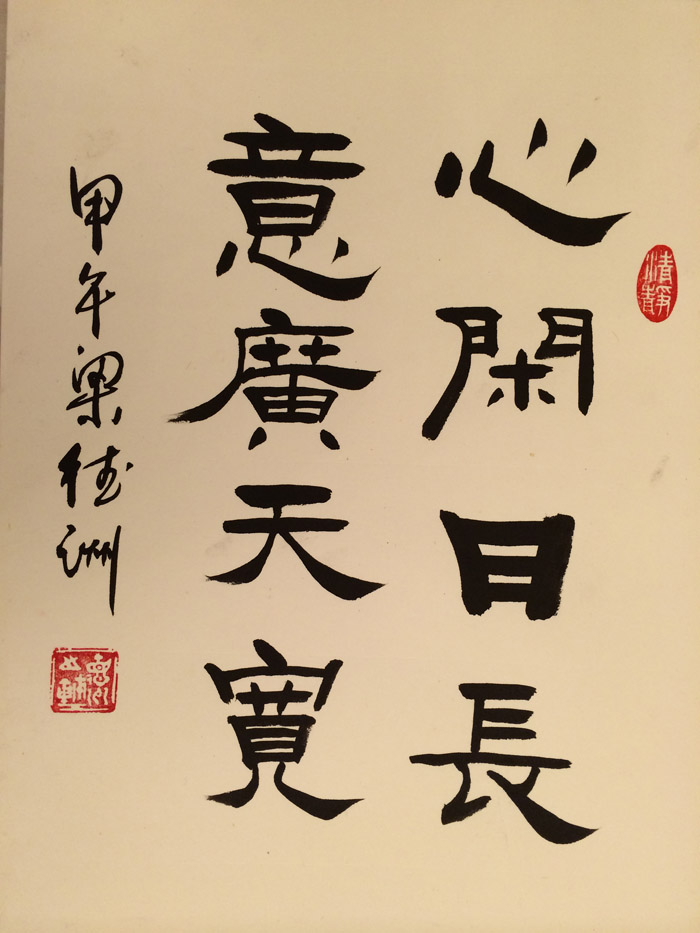 心閑日長
意廣天寬
甲午梁德洲
清靜